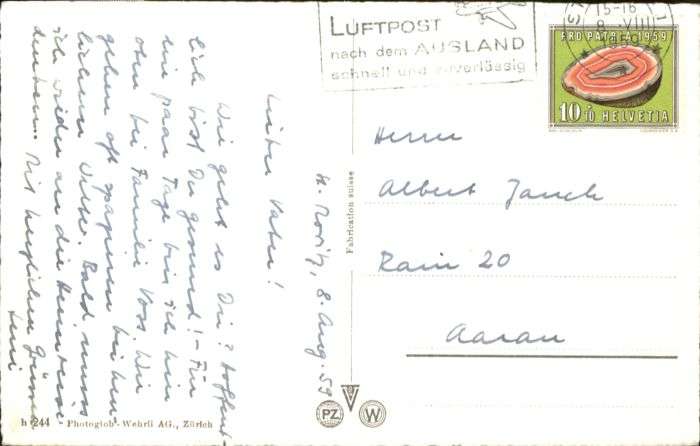 LUFTPOST
nach dem AUSLAND
schnell und zuverlässig
15-16
8.VIII
1959
PRO PATRIA 1959
10+10 HELVETIA
St. Moritz, 8. Aug. 59
Lieber Vater!
Wie geht es Dir? Hoffent-
lich bist Du gesund! - Für
ein paar Tage bin ich hier
oben bei Familie Voss. Wir
gehen oft spazieren bei herr-
lichem Wetter. Bald muss
ich wieder an die Heimreise
denken... Mit herzlichen Grüssen
Herrn
Albert Jauch
Rain 20
Aarau
Fabrication suisse
h 244 - Photoglob-Wehrli AG., Zürich
PZ
W